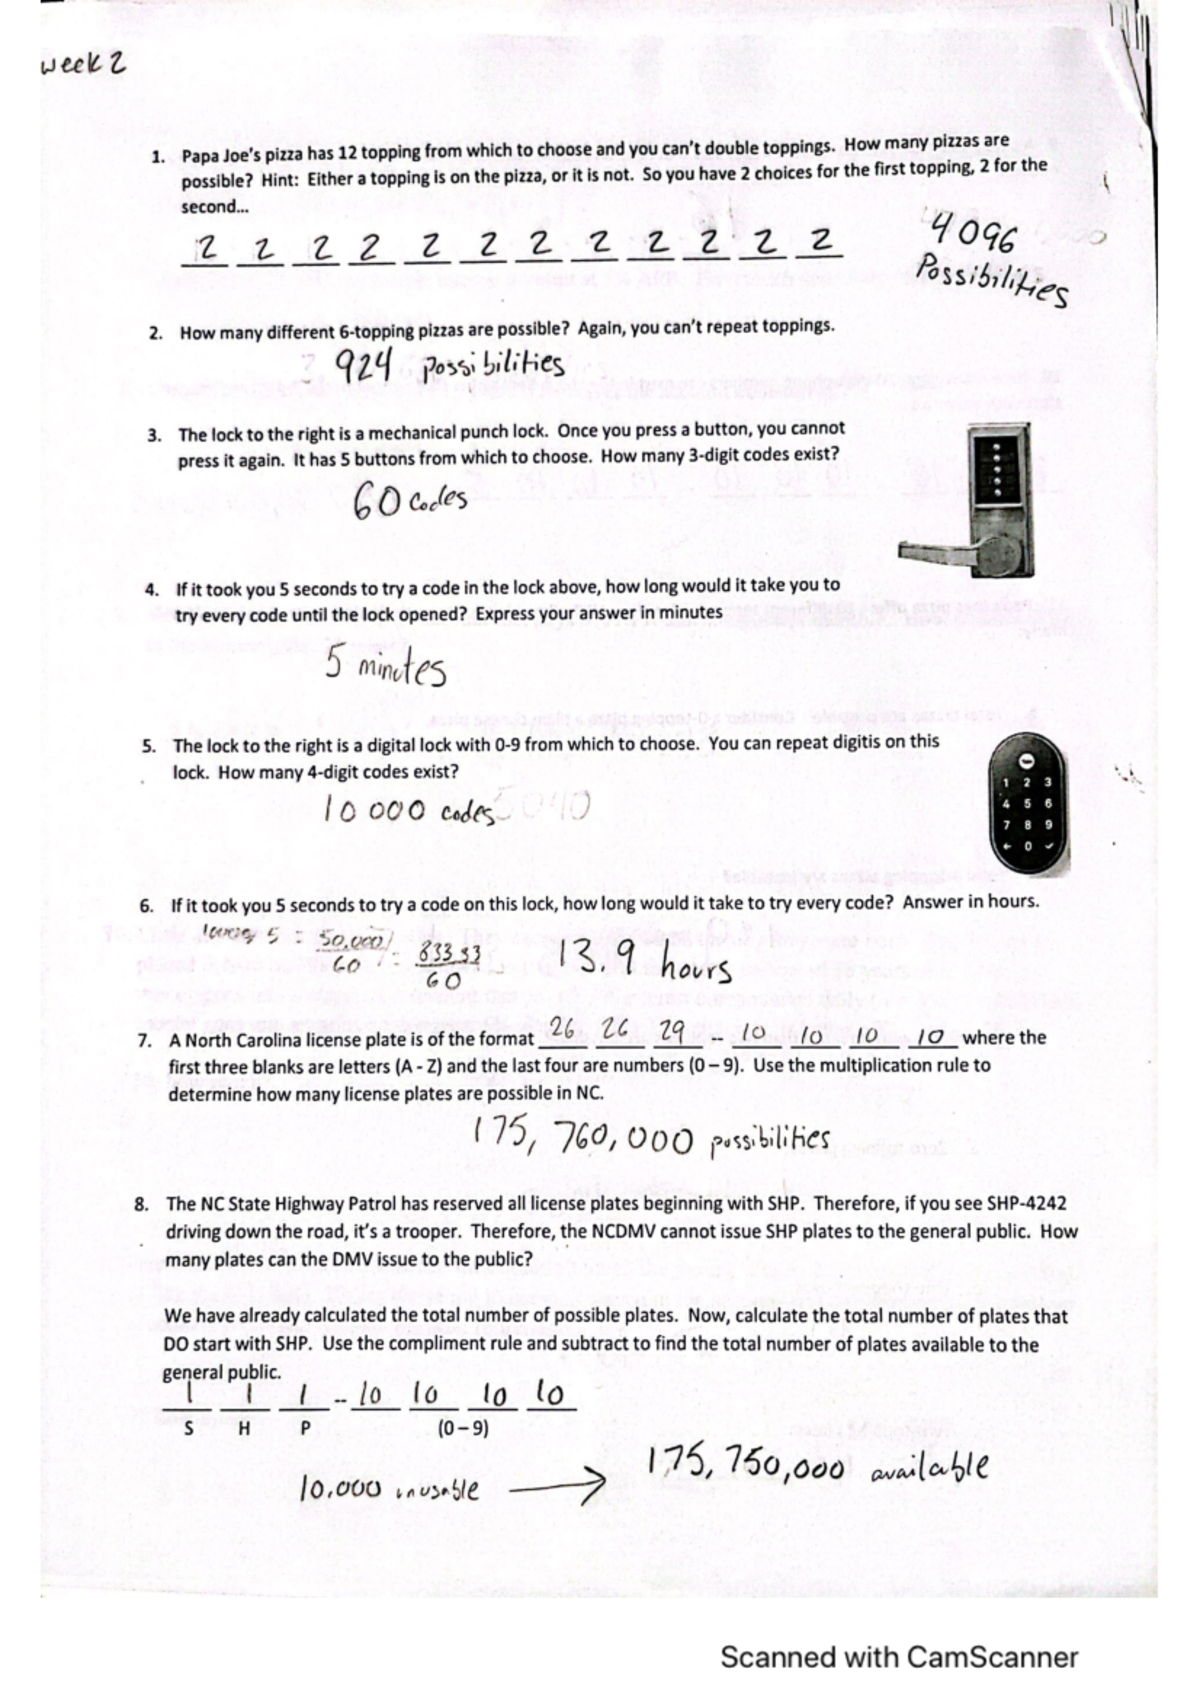 week 2
1. Papa Joe's pizza has 12 topping from which to choose and you can't double toppings. How many pizzas are
possible? Hint: Either a topping is on the pizza, or it is not. So you have 2 choices for the first topping, 2 for the
second...
2 2 2 2 2 2 2 2 2 2 2 2
4096
Possibilities
2. How many different 6-topping pizzas are possible? Again, you can't repeat toppings.
924 possibilities
3. The lock to the right is a mechanical punch lock. Once you press a button, you cannot
press it again. It has 5 buttons from which to choose. How many 3-digit codes exist?
60 codes
4. If it took you 5 seconds to try a code in the lock above, how long would it take you to
try every code until the lock opened? Express your answer in minutes
5 minutes
5. The lock to the right is a digital lock with 0-9 from which to choose. You can repeat digitis on this
lock. How many 4-digit codes exist?
1 2 3
4 5 6
7 8 9
← 0 ✓
10 000 codes 5040
6. If it took you 5 seconds to try a code on this lock, how long would it take to try every code? Answer in hours.
5 = 50,000/60 = 833.33/60 13.9 hours
7. A North Carolina license plate is of the format 26 26 29 -- 10 10 10 10 where the
first three blanks are letters (A - Z) and the last four are numbers (0 – 9). Use the multiplication rule to
determine how many license plates are possible in NC.
175,760,000 possibilities
8. The NC State Highway Patrol has reserved all license plates beginning with SHP. Therefore, if you see SHP-4242
driving down the road, it's a trooper. Therefore, the NCDMV cannot issue SHP plates to the general public. How
many plates can the DMV issue to the public?
We have already calculated the total number of possible plates. Now, calculate the total number of plates that
DO start with SHP. Use the compliment rule and subtract to find the total number of plates available to the
general public.
1 1 1 -- 10 10 10 10
S H P (0 – 9)
10,000 unusable → 175,750,000 available
Scanned with CamScanner